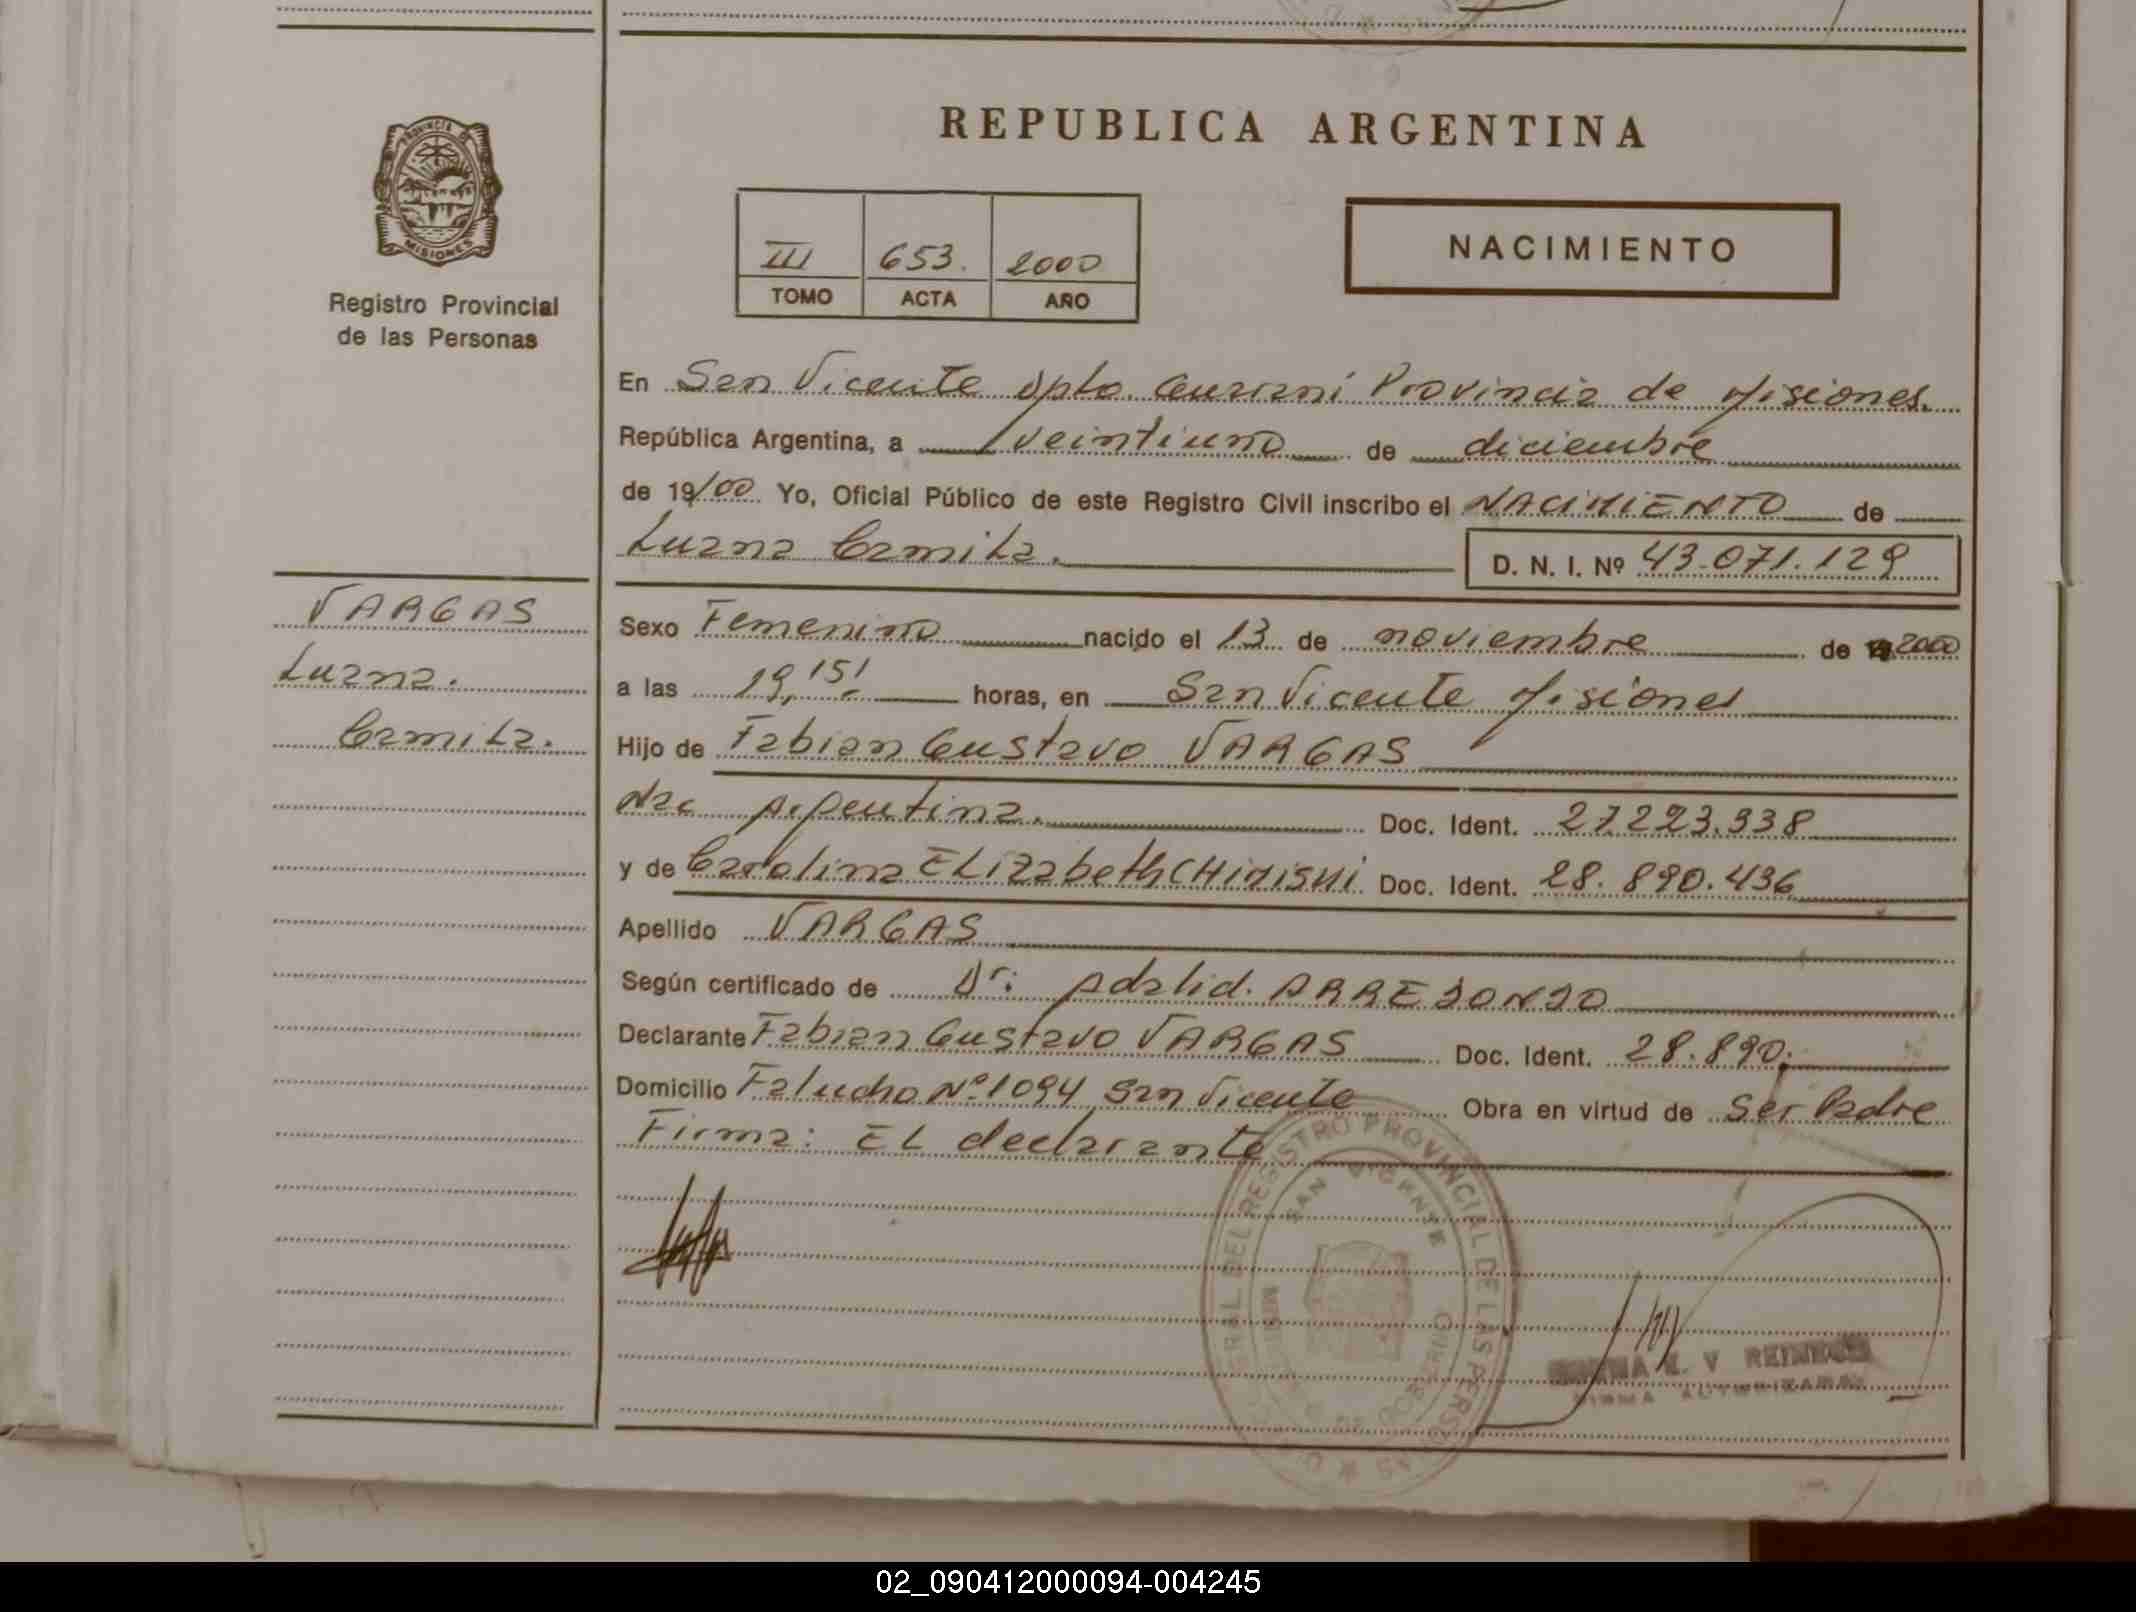 REPUBLICA ARGENTINA
PROVINCIA DE
MISIONES
Registro Provincial
de las Personas
III 653. 2000
TOMO ACTA AÑO
NACIMIENTO
En San Vicente Dpto. Guaraní Provincia de Misiones.
República Argentina, a veintiuno de diciembre
de 19/00 Yo, Oficial Público de este Registro Civil inscribo el NACIMIENTO de
Luana Camila. D. N. I. Nº 43.071.129
VARGAS
Luana.
Camila.
Sexo Femenino nacido el 13 de noviembre de 2000
a las 19,15! horas, en San Vicente Misiones
Hijo de Fabian Gustavo VARGAS
Nac Argentina. Doc. Ident. 27.223.938
y de Carolina ELizabeth Doc. Ident. 28.890.436
Apellido VARGAS
Según certificado de Dr: Adalid. ARREDONDO
Declarante Fabian Gustavo VARGAS Doc. Ident. 28.890.
Domicilio Falucho Nº 1094 San Vicente Obra en virtud de Ser Padre
Firma: EL declarante
REGISTRO PROVINCIAL DE LAS PERSONAS
SAN VICENTE
V REINECK
FIRMA AUTORIZADA
02_090412000094-004245